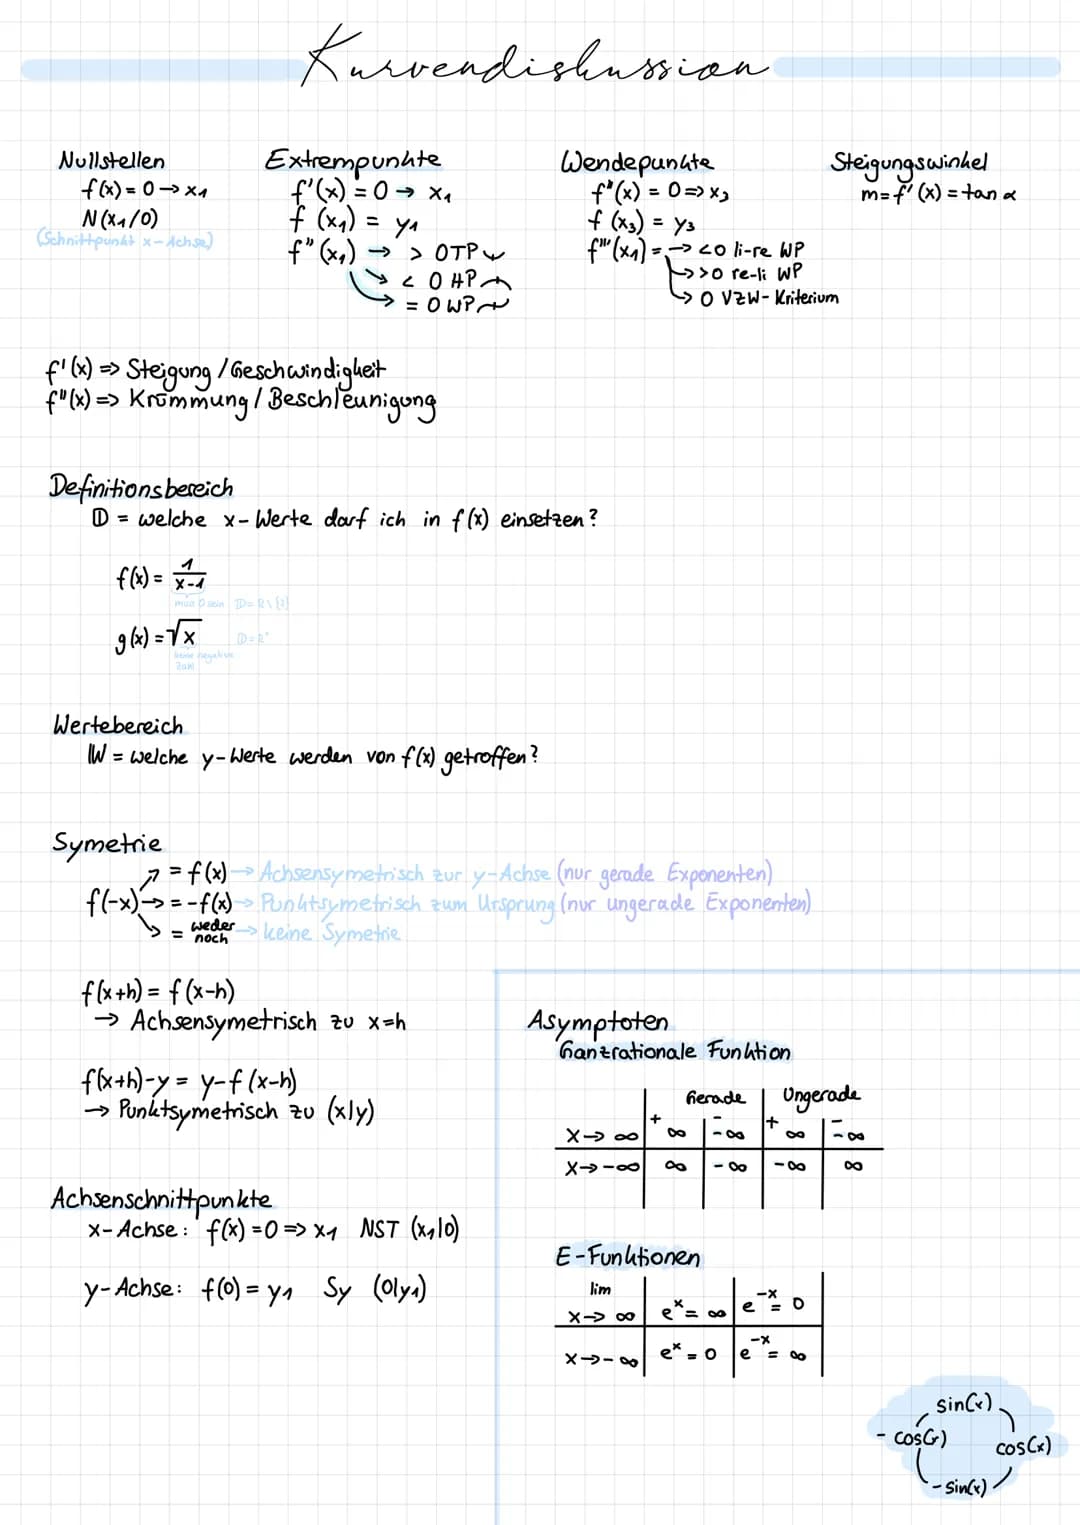 Kurvendiskussion
Nullstellen
f(x) = 0 → x₁
N (x₁/0)
(Schnittpunkt x-Achse)
Extrempunkte
f'(x) = 0 → x₁
f (x₁) = y₁
f"(x₁) → > 0 TP
→ < 0 HP
→ = 0 WP
Wendepunkte
f"(x) = 0 => x₃
f (x₃) = y₃
f'''(x₁) = → <0 li-re WP
→ >0 re-li WP
→ 0 VZW-Kriterium
Steigungswinkel
m = f'(x) = tan α
f'(x) => Steigung / Geschwindigkeit
f"(x) => Krümmung / Beschleunigung
Definitionsbereich
𝔻 = welche x-Werte darf ich in f(x) einsetzen?
f(x) = 1/(x-1)
0 sein 𝔻=R\{1}
g(x) = √x 𝔻=R⁺
keine negative
Zahl
Wertebereich
𝕎 = welche y-Werte werden von f(x) getroffen?
Symetrie
↗ = f(x) → Achsensymetrisch zur y-Achse (nur gerade Exponenten)
f(-x) → = -f(x) → Punktsymetrisch zum Ursprung (nur ungerade Exponenten)
↘ = weder noch → keine Symetrie
f(x+h) = f(x-h)
→ Achsensymetrisch zu x=h
f(x+h)-y = y-f(x-h)
→ Punktsymetrisch zu (x|y)
Achsenschnittpunkte
x-Achse: f(x) = 0 => x₁ NST (x₁|0)
y-Achse: f(0) = y₁ Sy (0|y₁)
Asymptoten
Ganzrationale Funktion
Gerade Ungerade
+ - + -
x → ∞ ∞ -∞ ∞ -∞
x → -∞ ∞ -∞ -∞ ∞
E-Funktionen
lim
x → ∞ eˣ = ∞ e⁻ˣ = 0
x → -∞ eˣ = 0 e⁻ˣ = ∞
sin(x)
- cos(x) cos(x)
- sin(x)